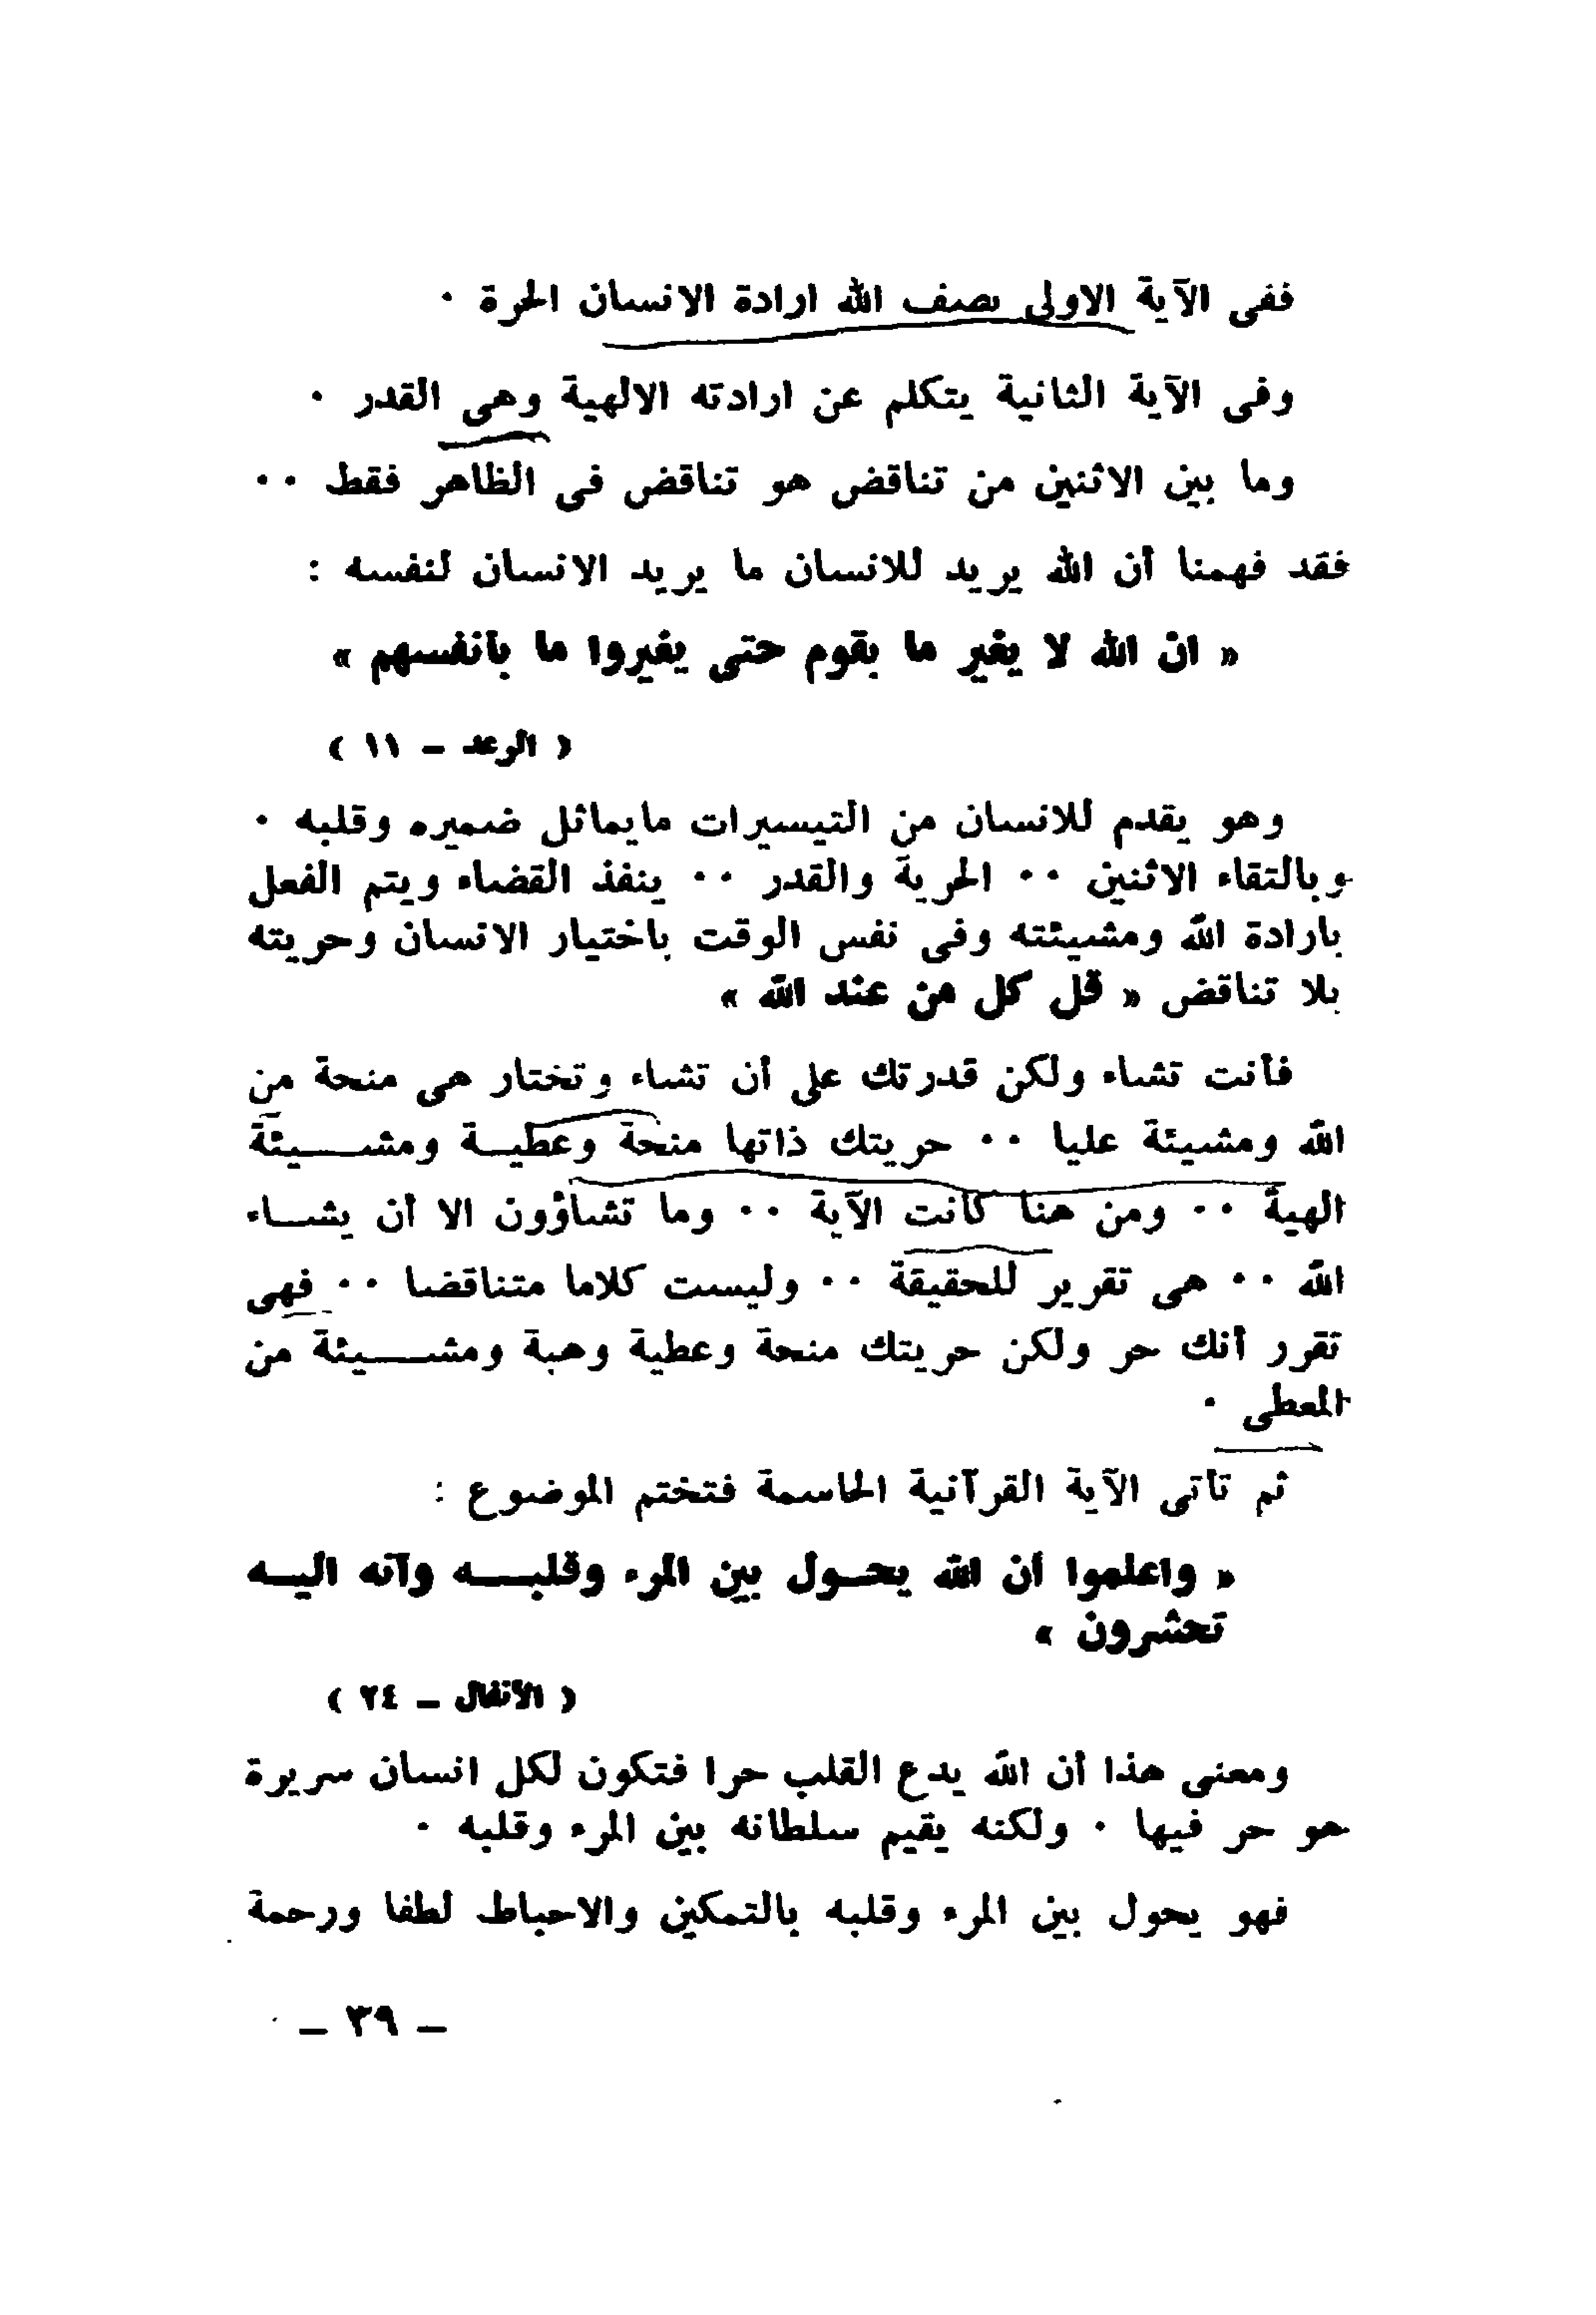 ففى الآية الاولى يصف الله ارادة الانسان الحرة ٠
وفى الآية الثانية يتكلم عن ارادته الالهية وهى القدر ٠
وما بين الاثنين من تناقض هو تناقض فى الظاهر فقط ٠٠
فقد فهمنا أن الله يريد للانسان ما يريد الانسان لنفسه :
« ان الله لا يغير ما بقوم حتى يغيروا ما بأنفسهم »
( الرعد – ١١ )
وهو يقدم للانسان من التيسيرات مايماثل ضميره وقلبه ٠
وبالتقاء الاثنين ٠٠ الحرية والقدر ٠٠ ينفذ القضاء ويتم الفعل
بارادة الله ومشيئته وفى نفس الوقت باختيار الانسان وحريته
بلا تناقض « قل كل من عند الله »
فأنت تشاء ولكن قدرتك على أن تشاء وتختار هى منحة من
الله ومشيئة عليا ٠٠ حريتك ذاتها منحة وعطيــة ومشــــيئة
الهية ٠٠ ومن هنا كانت الآية ٠٠ وما تشاؤون الا أن يشــاء
الله ٠٠ هى تقرير للحقيقة ٠٠ وليست كلاما متناقضا ٠٠ فهى
تقرر أنك حر ولكن حريتك منحة وعطية وهبة ومشــــيئة من
المعطى ٠
ثم تأتى الآية القرآنية الحاسمة فتختم الموضوع :
« واعلموا أن الله يحــول بين المرء وقلبـــه وأنه اليــه
تحشرون »
( الأنفال – ٢٤ )
ومعنى هذا أن الله يدع القلب حرا فتكون لكل انسان سريرة
هو حر فيها ٠ ولكنه يقيم سلطانه بين المرء وقلبه ٠
فهو يحول بين المرء وقلبه بالتمكين والاحباط لطفا ورحمة
– ٣٩ –